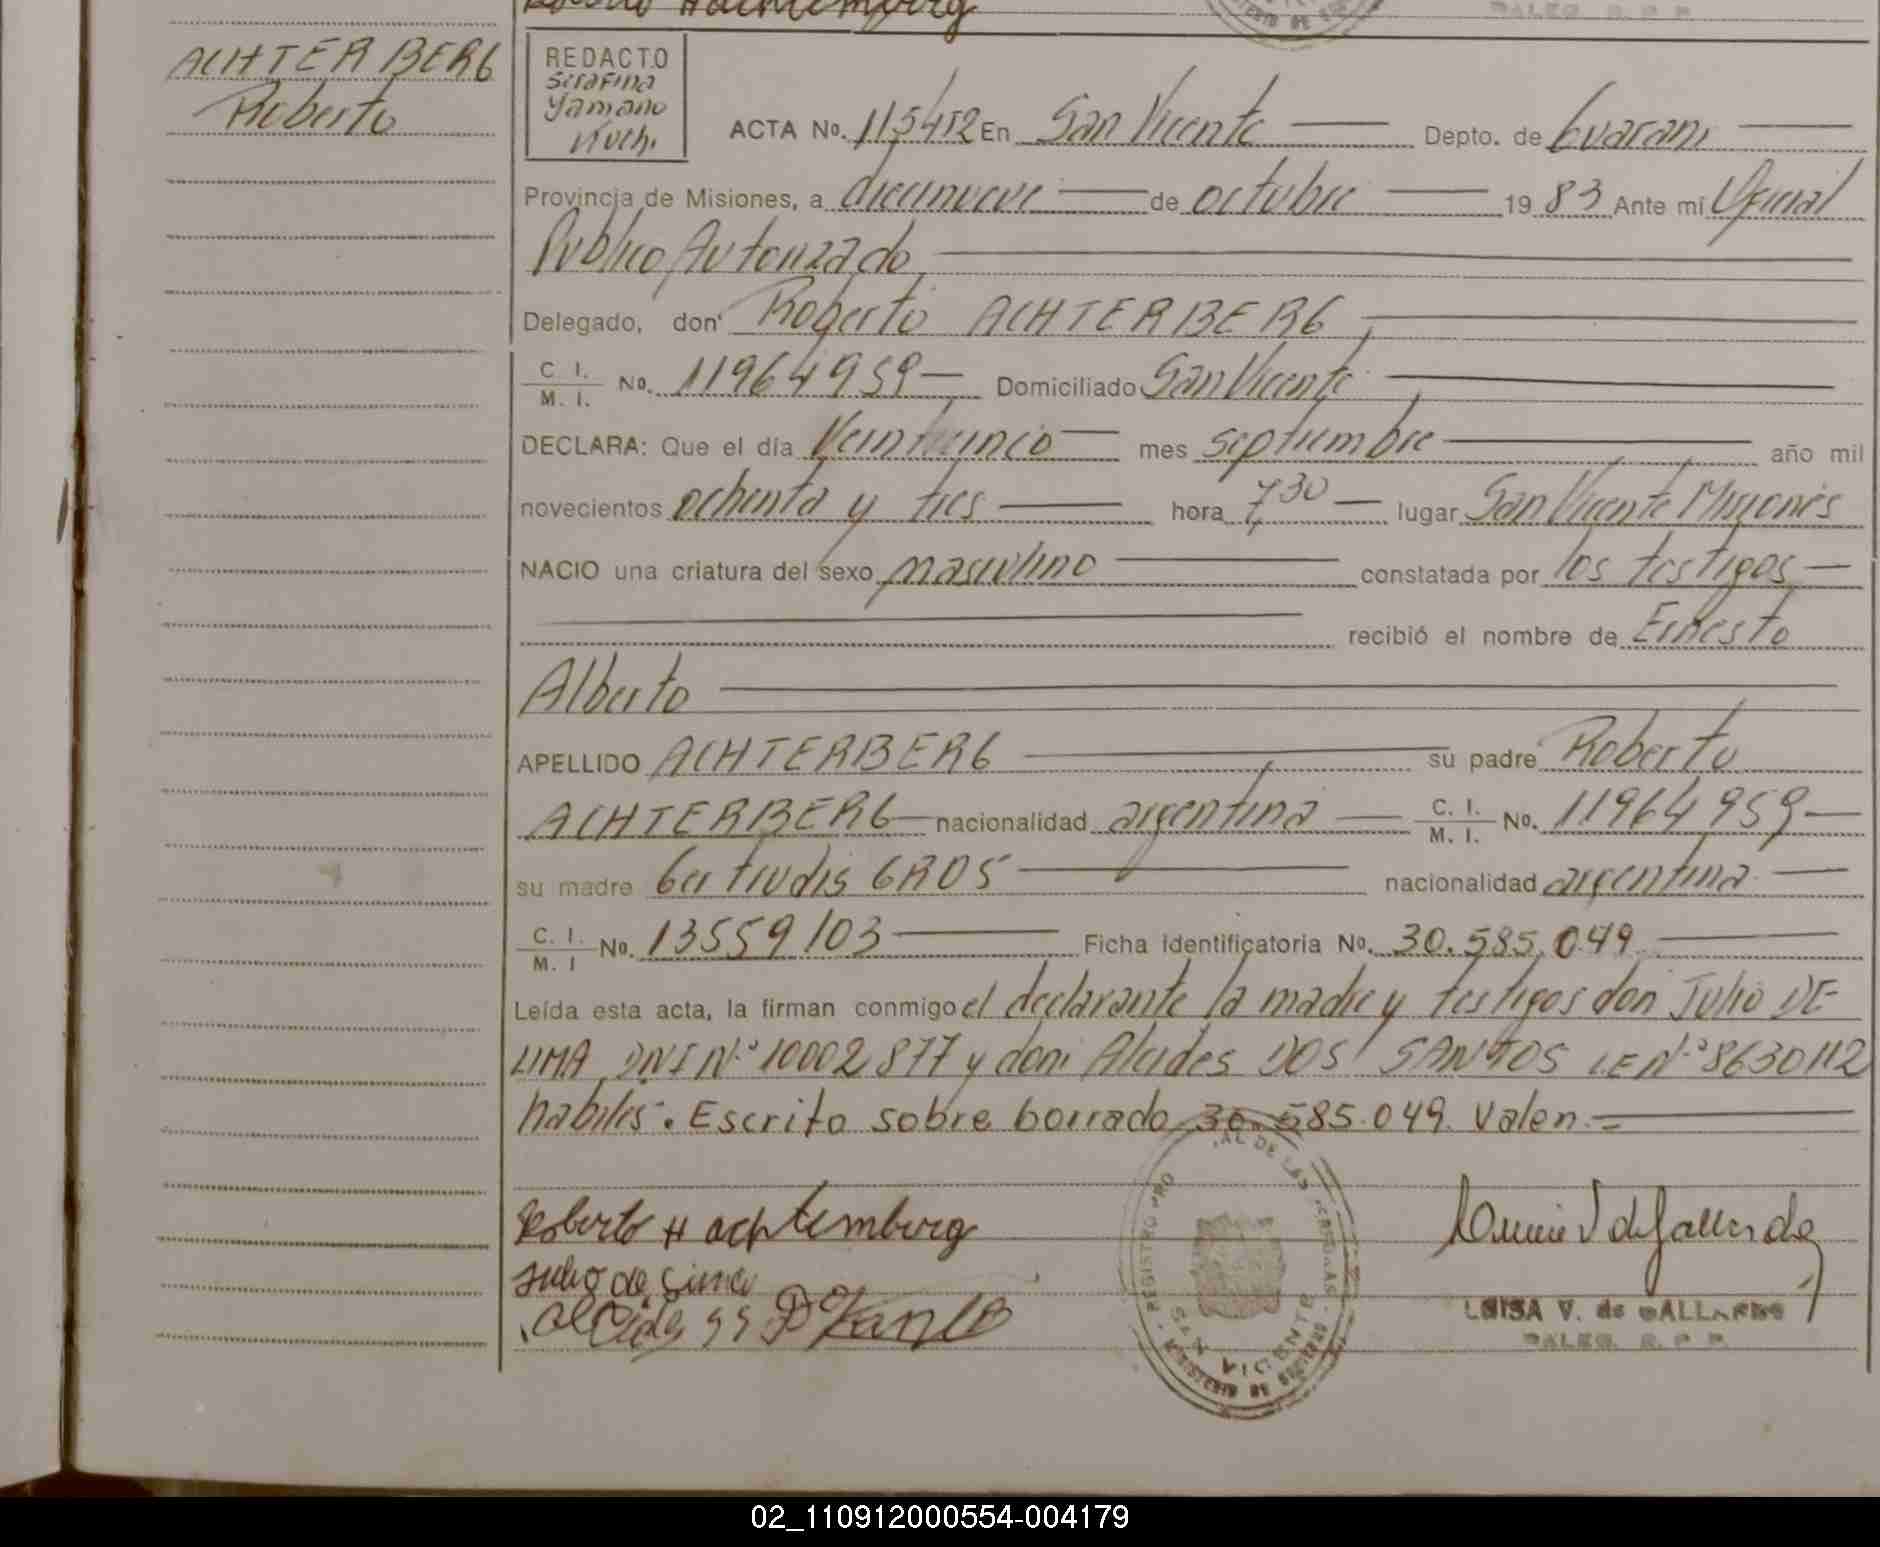 Roberto Hachtemberg
DALEG. R. P. P.
ACHTERBERG
Roberto
REDACTO
Serafina
Yamano
Koch.
ACTA No. 115412 En San Vicente Depto. de Guarani
Provincia de Misiones, a diecinueve de octubre 1983 Ante mí Oficial
Publico Autorizado
Delegado, don Roberto ACHTERBERG
C. I. / M. I. No. 11964959 Domiciliado San Vicente
DECLARA: Que el día Veinticinco mes septiembre año mil
novecientos ochenta y tres hora 7,30 lugar San Vicente Misiones
NACIO una criatura del sexo masculino constatada por los testigos
recibió el nombre de Ernesto
Alberto
APELLIDO ACHTERBERG su padre Roberto
ACHTERBERG nacionalidad argentina C. I. / M. I. No. 11964959
su madre Gertrudis GROS nacionalidad argentina
C. I. / M. I No. 13559103 Ficha identificatoria No. 30.585.049
Leída esta acta, la firman conmigo el declarante la madre y testigos don Julio DE
LIMA DNI N.º 10002877 y don Alcides DOS SANTOS LE N.º 8630112
habiles. Escrito sobre borrado 30.585.049. Valen.
Roberto H achtemberg
Julio de Lima
REGISTRO PRO AL DE LAS PERSONAS
SAN VICENTE
MINISTERIO DE GOBIERNO
LUISA V. de GALLARDO
DALEG. R. P. P.
02_110912000554-004179